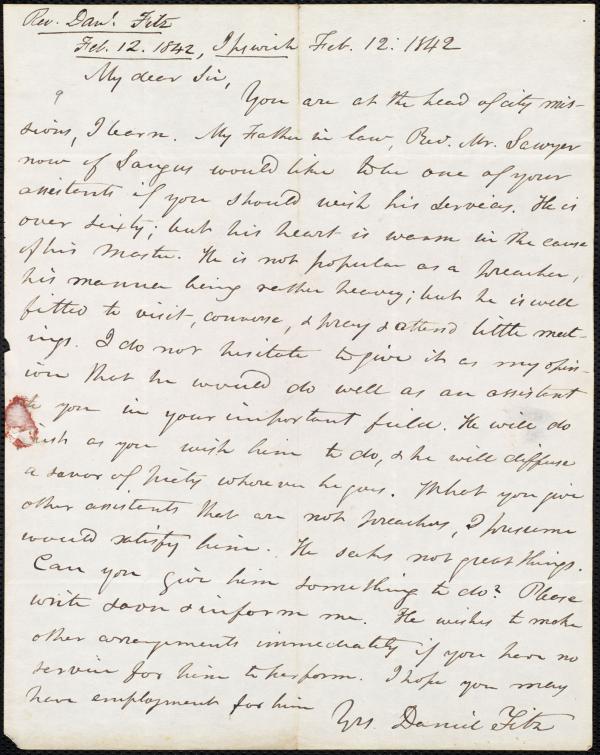 Rev. Danl. Fitz
Feb. 12. 1842, Ipswich Feb. 12. 1842
My dear Sir,
You are at the head of city mis-
sions, I learn. My Father in law, Rev. Mr. Sawyer
now of Saugus would like to be one of your
assistants if you should wish his services. He is
over sixty; but his heart is warm in the cause
of his Master. He is not popular as a preacher,
his manner being rather heavy; but he is well
fitted to visit, converse, & pray & attend little meet-
ings. I do not hesitate to give it as my opin-
ion that he would do well as an assistant
to you in your important field. He will do
as you wish him to do, & he will diffuse
a savor of piety wherever he goes. What you give
other assistants that are not preachers, I presume
would satisfy him. He seeks not great things.
Can you give him something to do? Please
write soon & inform me. He wishes to make
other arrangements immediately if you have no
service for him to perform. I hope you may
have employment for him
Yrs. Daniel Fitz